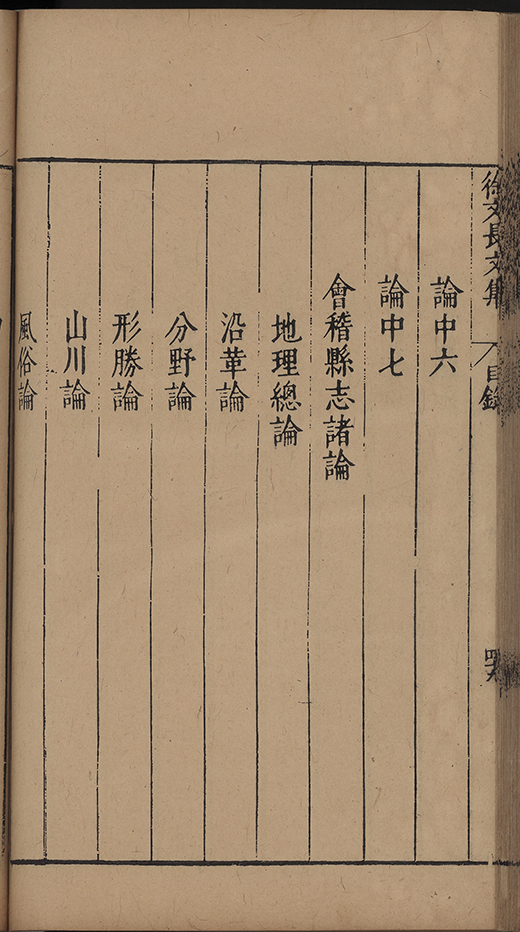 徐文長文集
目錄
論中六
論中七
會稽縣志諸論
地理總論
沿革論
分野論
形勝論
山川論
風俗論